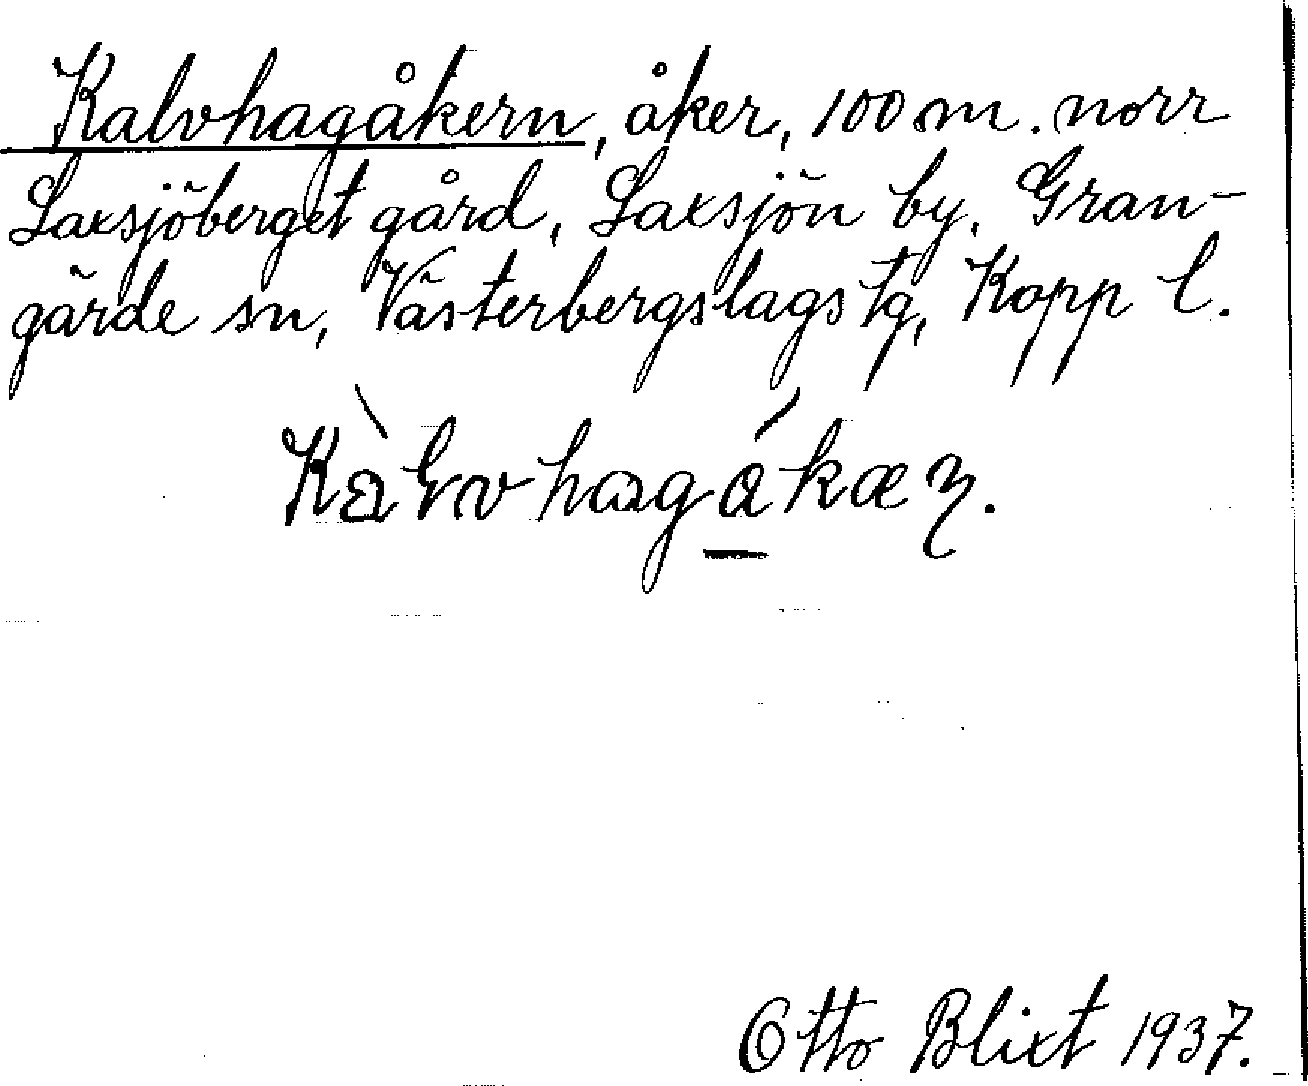 Kalvhagåkern, åker, 100 m. norr
Laxsjöberget gård, Laxsjön by, Gran-
gärde sn, Västerbergslags tg, Kopp l.
Otto Blixt 1937.